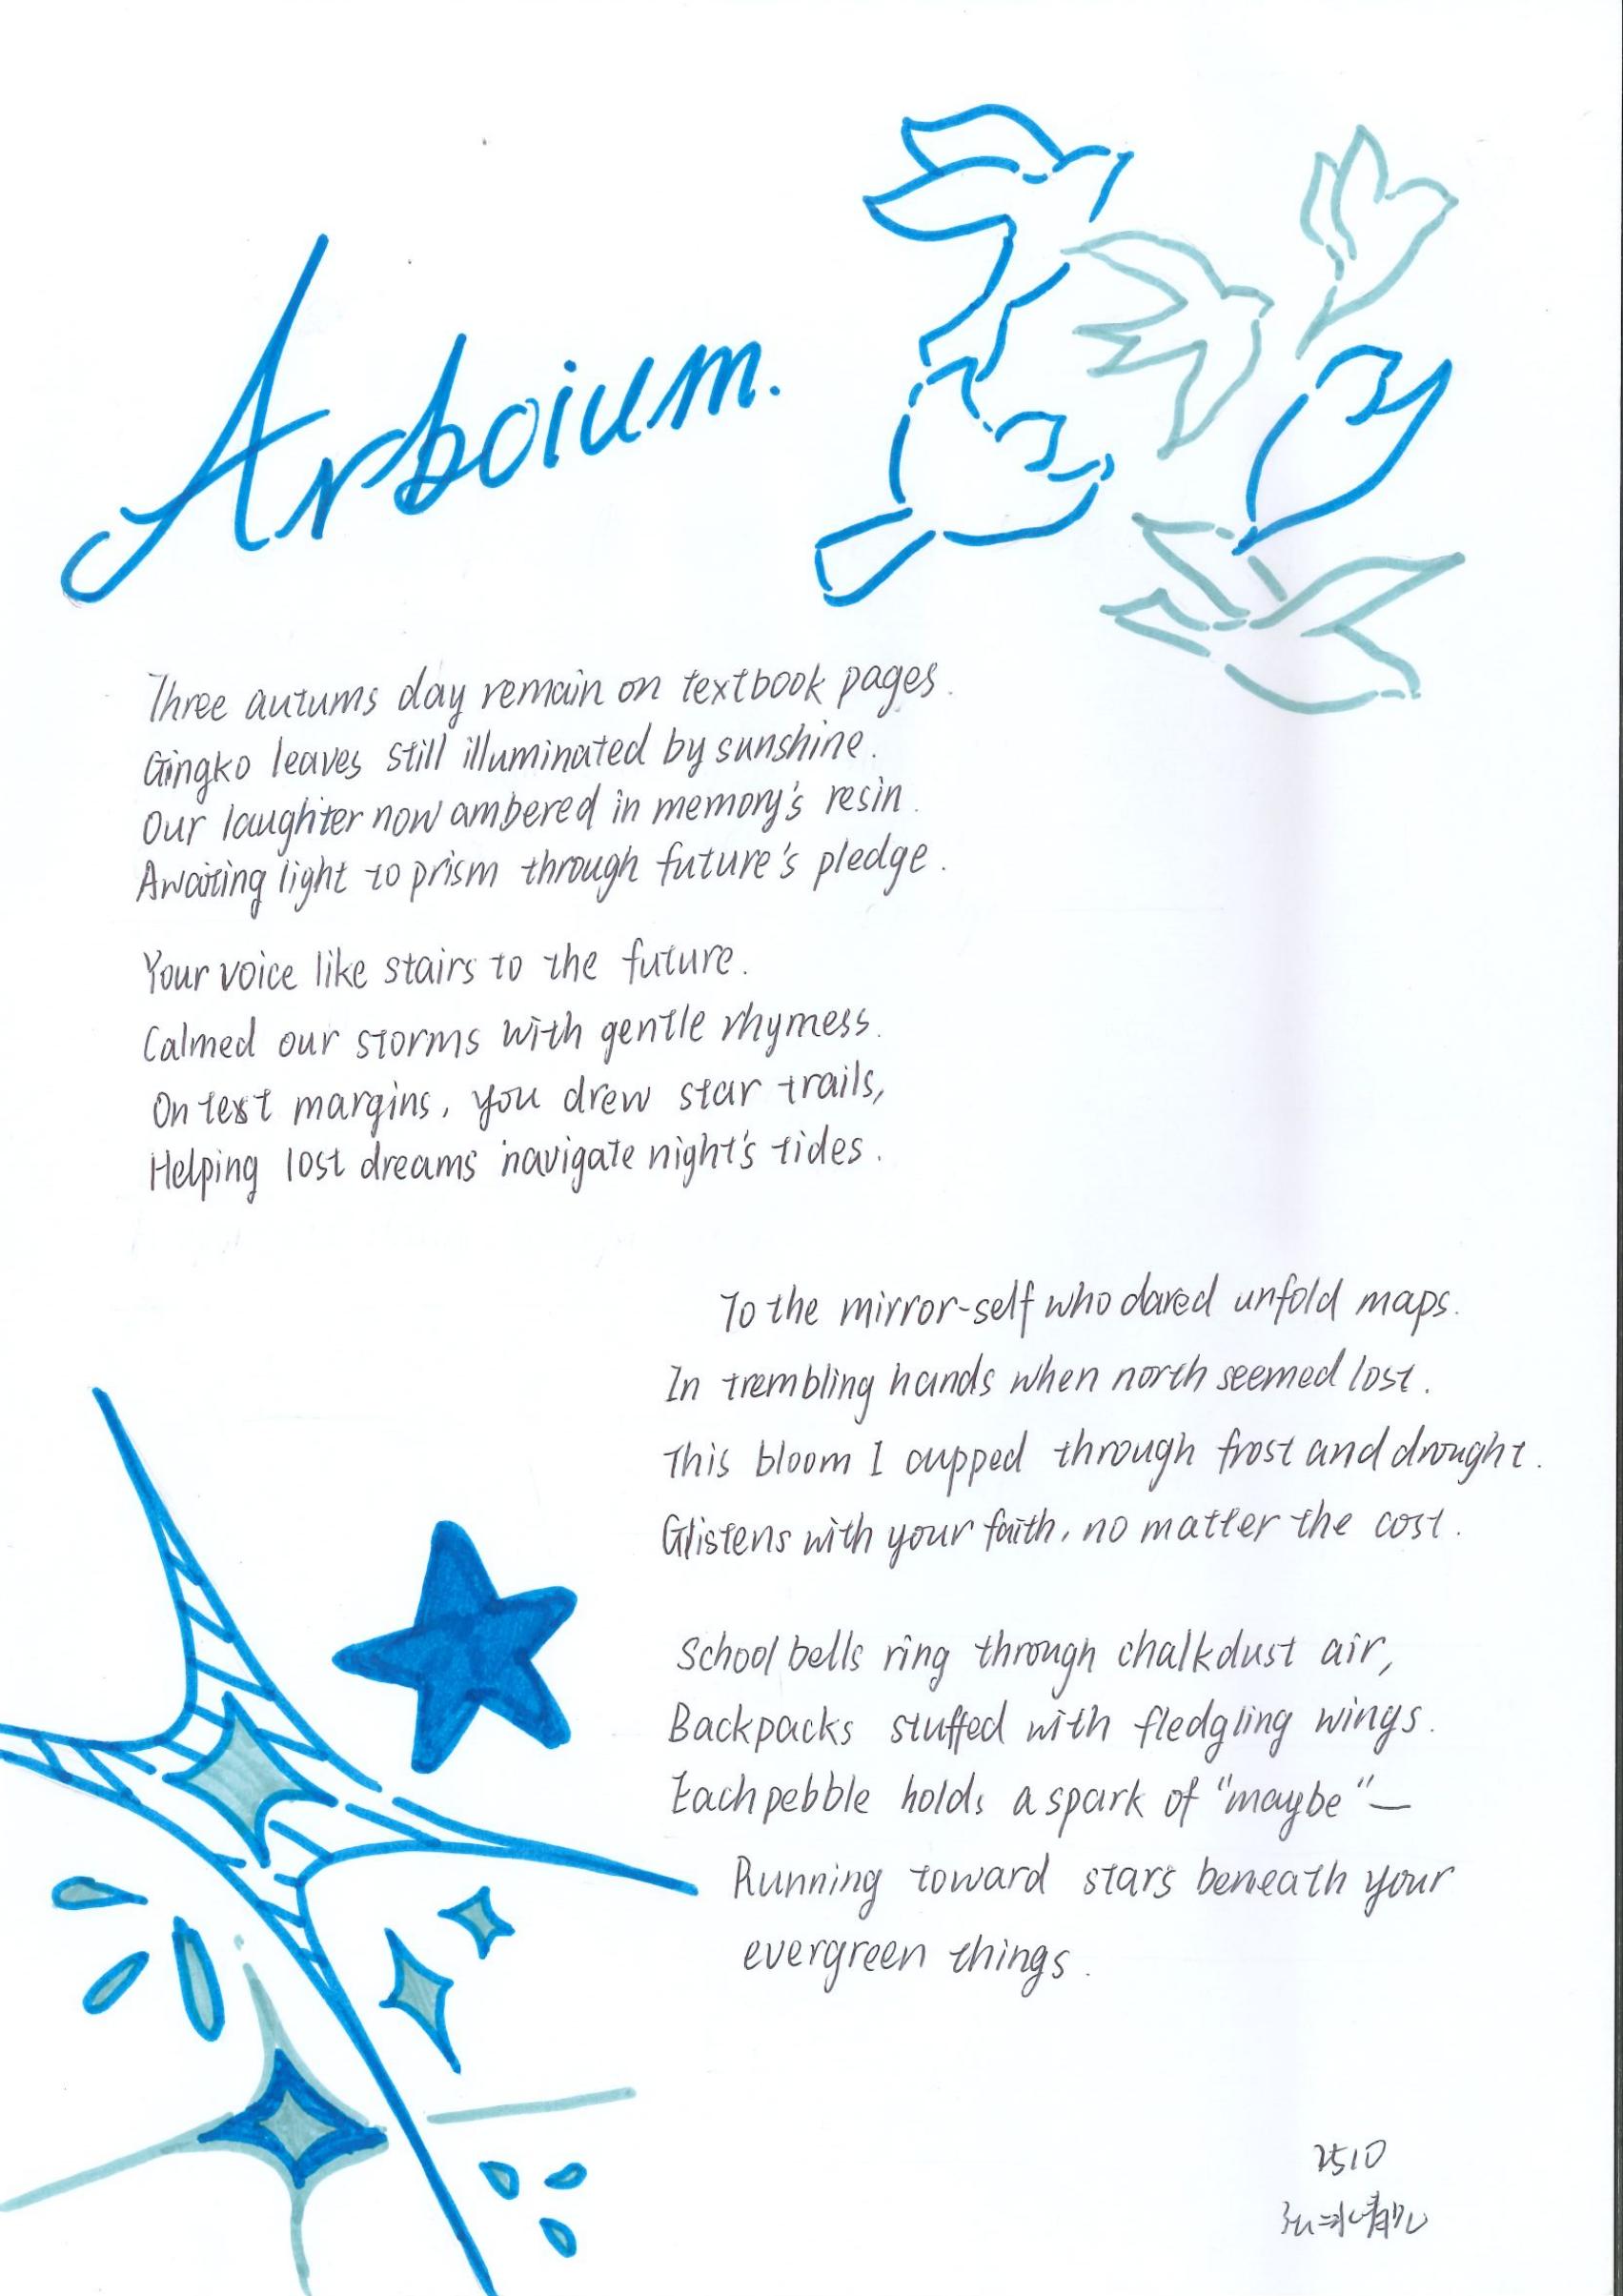 Arboium.
Three autums day remain on textbook pages.
Gingko leaves still illuminated by sunshine.
Our laughter now ambered in memory's resin.
Awaiting light to prism through future's pledge.
Your voice like stairs to the future.
Calmed our storms with gentle rhymess.
On text margins, you drew star trails,
Helping lost dreams navigate night's tides.
To the mirror-self who dared unfold maps.
In trembling hands when north seemed lost.
This bloom I cupped through frost and drought.
Glistens with your faith, no matter the cost.
School bells ring through chalkdust air,
Backpacks stuffed with fledgling wings.
Each pebble holds a spark of "maybe"—
Running toward stars beneath your
evergreen things.
2510